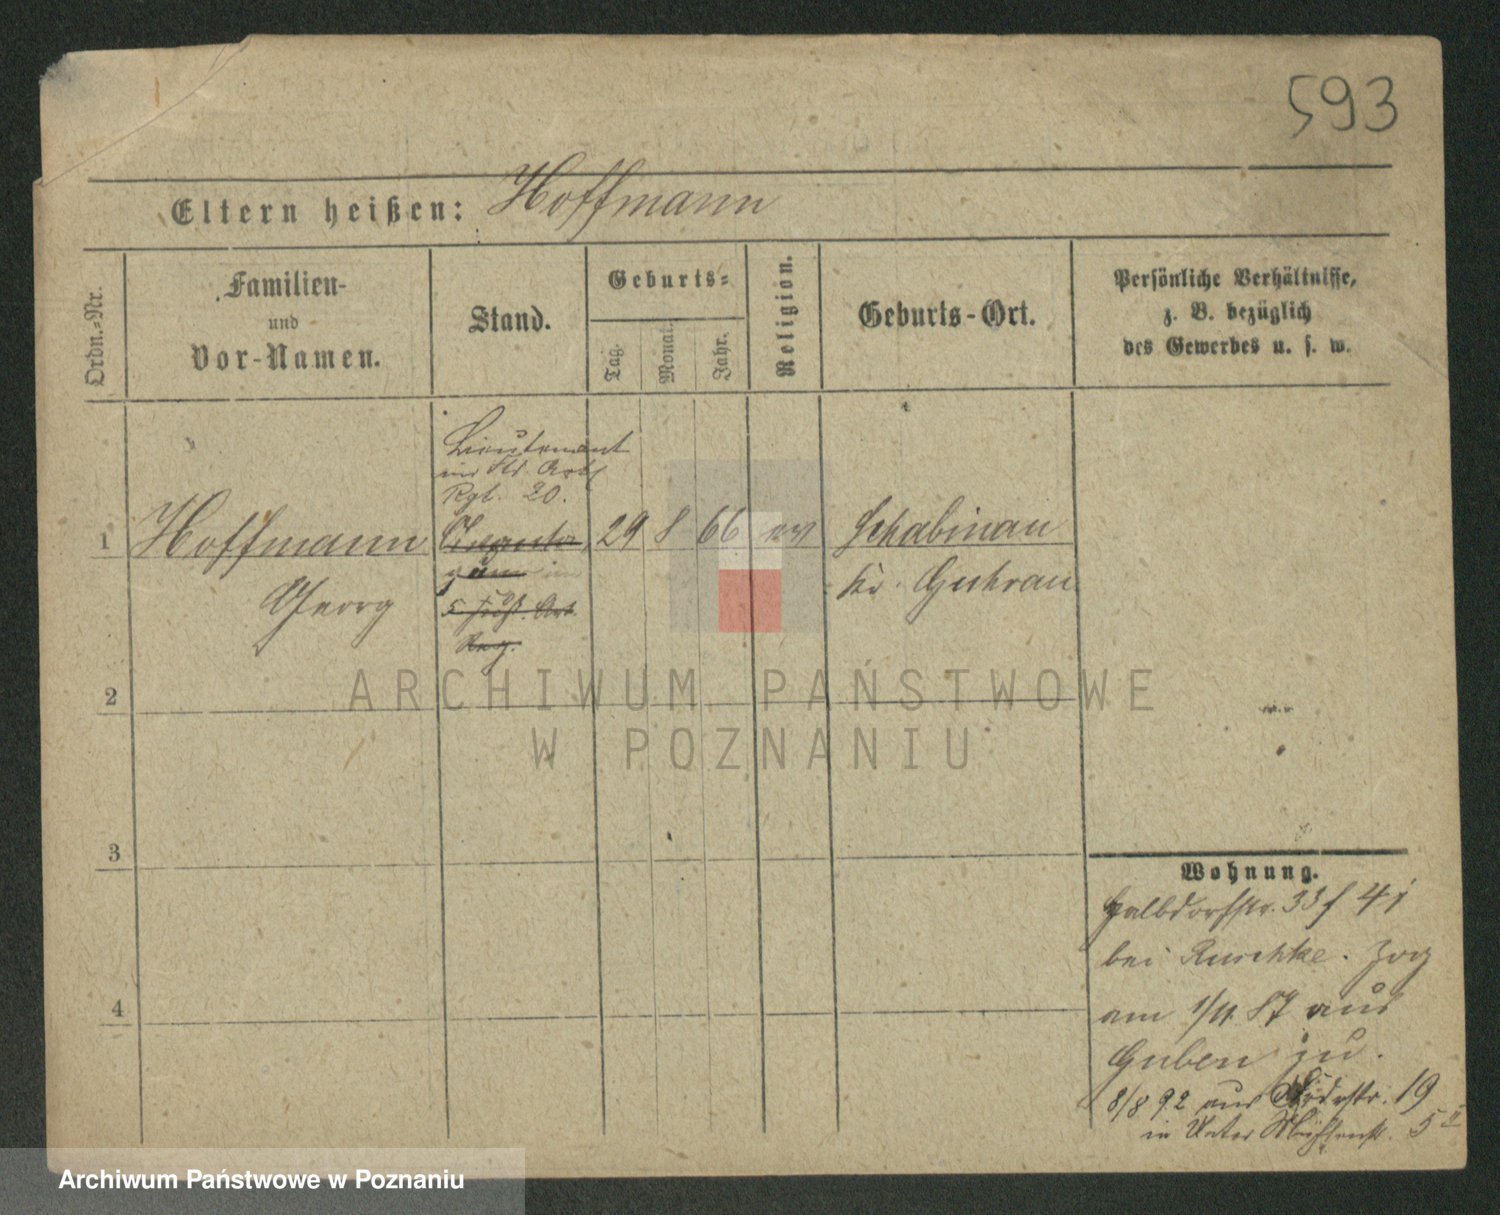 593
Eltern heißen: Hoffmann
Ordn.-Nr.
Familien-
und
Vor-Namen.
Stand.
Geburts-
Tag.
Monat.
Jahr.
Religion.
Geburts-Ort.
Persönliche Verhältnisse,
z. B. bezüglich
des Gewerbes u. s. w.
Lieutenant
im Fd. Artl
Rgt. 20.
1 Hoffmann 29 8 66 ev Schabinau
Georg
Kr. Guhrau
im
5 Art
Reg.
2
3
4
Wohnung.
Halbdorfstr. 33f 4 i
bei Ruschke. Zog
am 1/11 87 aus
Guben zu.
8/8 92 aus 19
in Unter Mühlenst. 5 II
ARCHIWUM PAŃSTWOWE
W POZNANIU
Archiwum Państwowe w Poznaniu